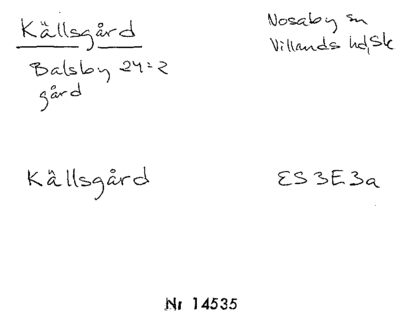 Källsgård
Nosaby sn
Villands hd, Sk
Balsby 24:2
gård
Källsgård
ES 3E 3a
Nr 14535